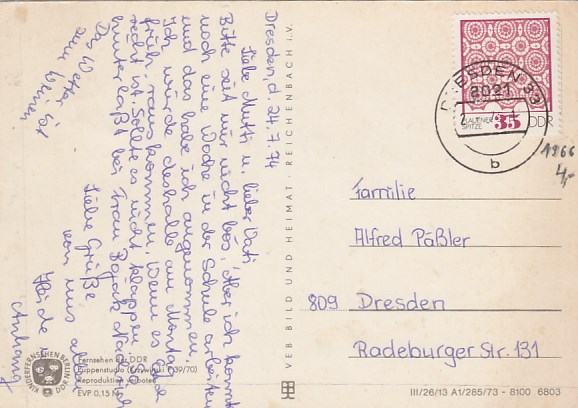 Dresden, d. 24.7.74
Liebe Mutti u. lieber Vati!
Bitte seit mir nicht bös. Aber ich konnt
noch eine Woche in der Schule arbeiten
und das habe ich angenommen.
Ich würde deshalb am Montag
früh rauskommen, wenn es Euch
recht ist. Sollte es nicht klappen
hinterlaßt bei Frau
Das Wetter ist
zum Weinen
Liebe Grüße
von uns allen
Heide u.
Anhang
VEB BILD UND HEIMAT · REICHENBACH I. V.
KINDERFERNSEHEN BERLIN DDR
Fernsehen der DDR
Puppenstudio
Reproduktion verboten
EVP 0,15 M
DRESDEN 33
8021
b
PLAUENER
SPITZE
35
DDR
1966
4,-
Familie
Alfred Päßler
809 Dresden
Radeburger Str. 131
III/26/13 A1/285/73 - 8100 6803